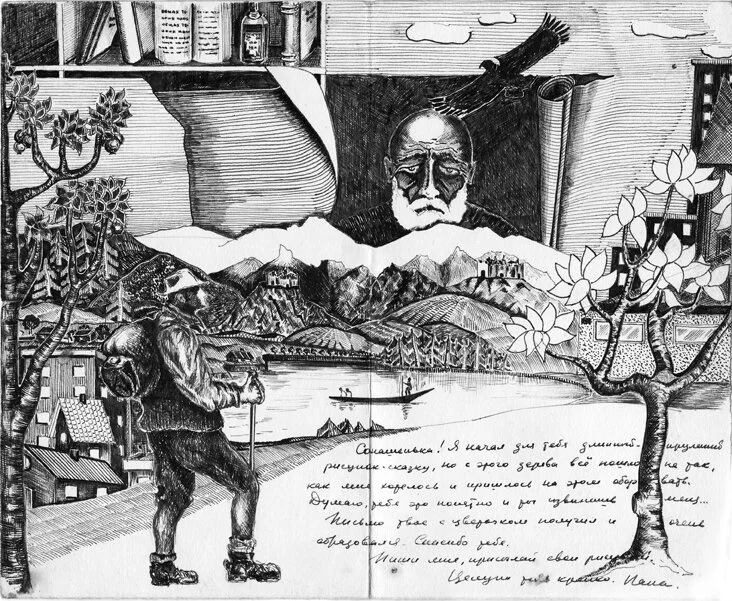 Я начал для тебя длинный-
рисунок-сказку, но с этого дерева всё пошло не так,
как мне хотелось и пришлось на этом оборвать.
Думаю, тебе это понятно и ты извинишь меня...
Письмо твое с цветочком получил и очень
обрадовался. Спасибо тебе.
Пиши мне, присылай свои
Целую тебя крепко. Папа.